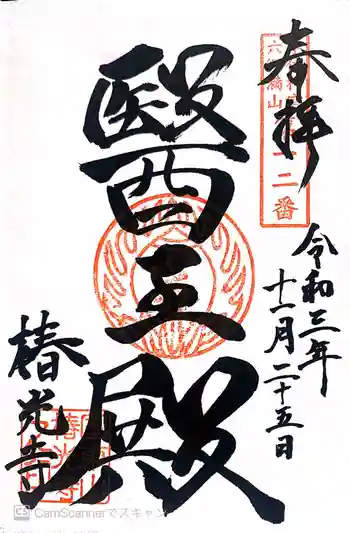 奉拝
令和三年
十二月二十五日
醫王殿
椿光寺
二番
CS CamScannerでスキャン